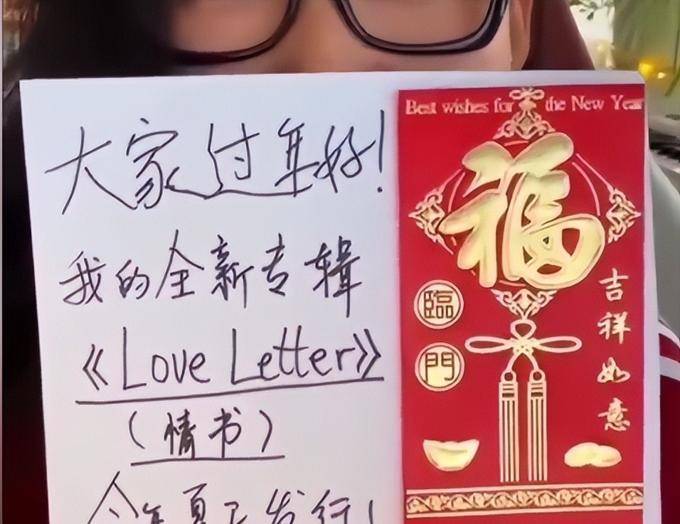 大家过年好!
我的全新专辑
《Love Letter》
(情书)
今年夏天发行!
Best wishes for the New Year
福
臨
門
吉祥如意